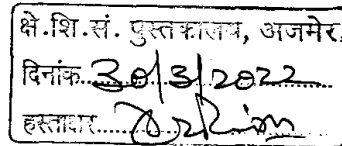 क्षे.शि.सं. पुस्तकालय, अजमेर
दिनांक 30/3/2022
हस्ताक्षर